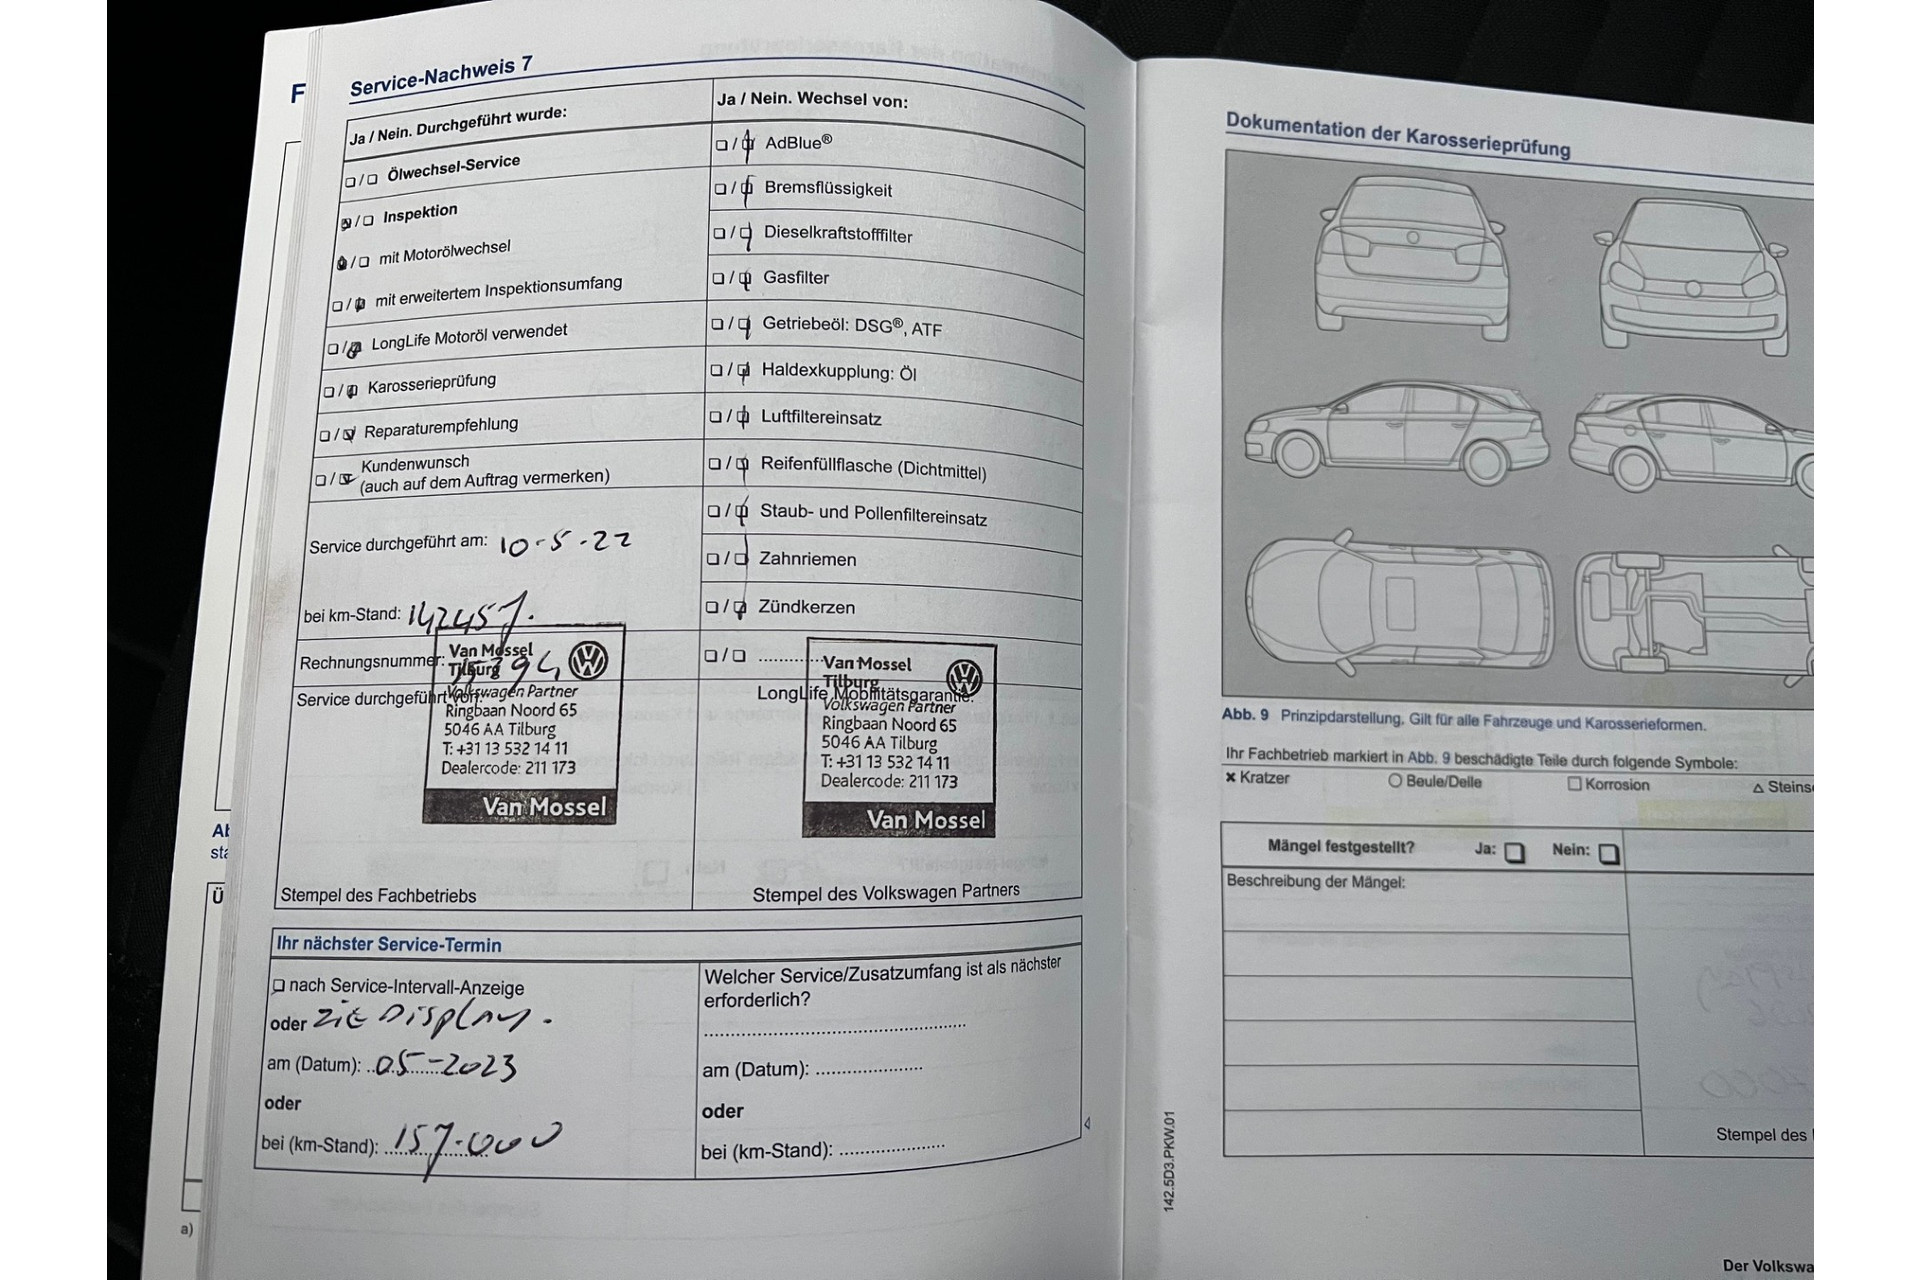 F
Service-Nachweis 7
Ja / Nein. Durchgeführt wurde:
Ölwechsel-Service
Inspektion
mit Motorölwechsel
mit erweitertem Inspektionsumfang
LongLife Motoröl verwendet
Karosserieprüfung
Reparaturempfehlung
Kundenwunsch
(auch auf dem Auftrag vermerken)
Service durchgeführt am: 10-5-22
bei km-Stand: 142457.
Rechnungsnummer:
Service durchgeführt von:
Van Mossel
Tilburg
Volkswagen Partner
Ringbaan Noord 65
5046 AA Tilburg
T: +31 13 532 14 11
Dealercode: 211 173
Van Mossel
Stempel des Fachbetriebs
Ja / Nein. Wechsel von:
AdBlue®
Bremsflüssigkeit
Dieselkraftstofffilter
Gasfilter
Getriebeöl: DSG®, ATF
Haldexkupplung: Öl
Luftfiltereinsatz
Reifenfüllflasche (Dichtmittel)
Staub- und Pollenfiltereinsatz
Zahnriemen
Zündkerzen
LongLife Mobilitätsgarantie:
Van Mossel
Tilburg
Volkswagen Partner
Ringbaan Noord 65
5046 AA Tilburg
T: +31 13 532 14 11
Dealercode: 211 173
Van Mossel
Stempel des Volkswagen Partners
Ihr nächster Service-Termin
nach Service-Intervall-Anzeige
oder ZIE Display.
am (Datum): 05-2023
oder
bei (km-Stand): 157.000
Welcher Service/Zusatzumfang ist als nächster
erforderlich?
am (Datum):
oder
bei (km-Stand):
a)
142.5D3.PKW.01
Dokumentation der Karosserieprüfung
Abb. 9 Prinzipdarstellung. Gilt für alle Fahrzeuge und Karosserieformen.
Ihr Fachbetrieb markiert in Abb. 9 beschädigte Teile durch folgende Symbole:
× Kratzer ○ Beule/Delle □ Korrosion △ Steins
Mängel festgestellt? Ja: Nein:
Beschreibung der Mängel:
Stempel des
Der Volkswa